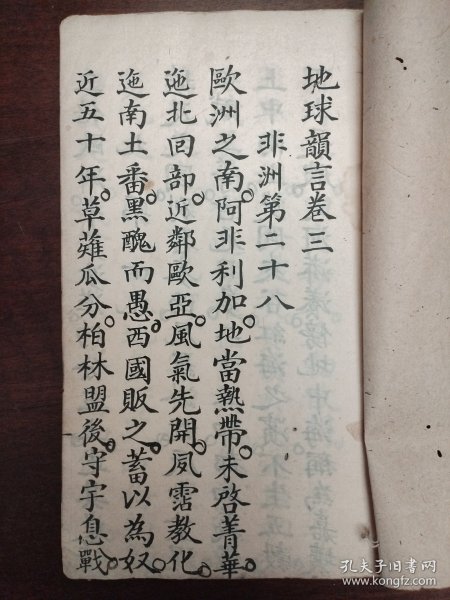 地球韻言卷三
非洲第二十八
歐洲之南。阿非利加。地當熱帶。未啓菁華。
迤北回部。近鄰歐亞。風氣先開。夙霑教化。
迤南土番。黑醜而愚。西國販之。蓄以為奴。
近五十年。草薙瓜分。柏林盟後。守宇息戰。
孔夫子旧书网
www.kongfz.com